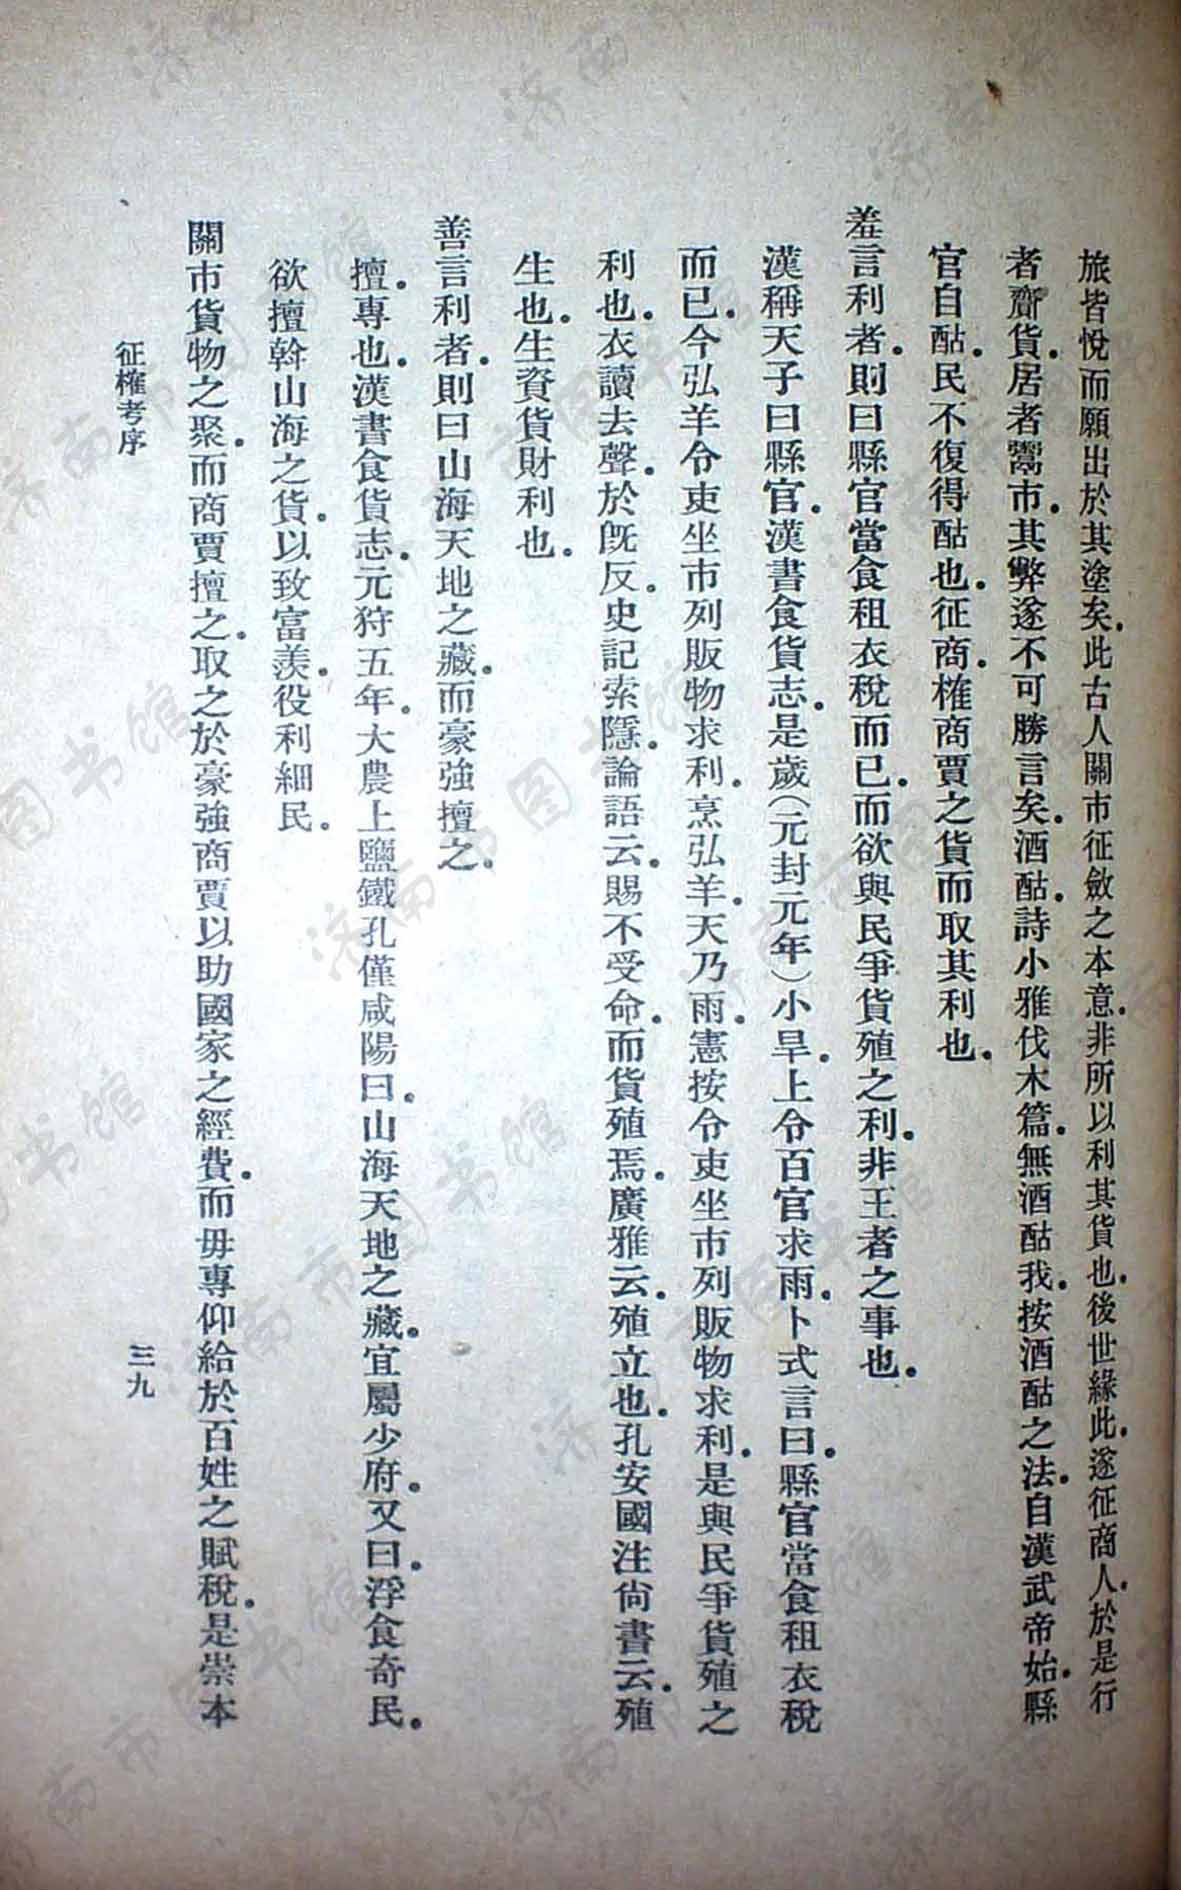 旅皆悅而願出於其塗矣。此古人關市征斂之本意。非所以利其貨也。後世緣此。遂征商人。於是行
者齎貨。居者鬻市。其弊遂不可勝言矣。酒酤。詩小雅伐木篇。無酒酤我。按酒酤之法。自漢武帝始。縣
官自酤。民不復得酤也。征商。榷商賈之貨而取其利也。
羞言利者。則曰縣官當食租衣稅而已。而欲與民爭貨殖之利。非王者之事也。
漢稱天子曰縣官。漢書食貨志。是歲（元封元年）小旱。上令百官求雨。卜式言曰。縣官當食租衣稅
而已。今弘羊令吏坐市列販物求利。烹弘羊。天乃雨。憲按令吏坐市列販物求利。是與民爭貨殖之
利也。衣讀去聲。於旣反。史記索隱。論語云。賜不受命。而貨殖焉。廣雅云。殖立也。孔安國注尙書云。殖
生也。生資貨財利也。
善言利者。則曰山海天地之藏。而豪強擅之。
擅。專也。漢書食貨志。元狩五年。大農上鹽鐵孔僅咸陽曰。山海天地之藏。宜屬少府。又曰。浮食奇民。
欲擅斡山海之貨。以致富羨。役利細民。
關市貨物之聚。而商賈擅之。取之於豪強商賈以助國家之經費。而毋專仰給於百姓之賦稅。是崇本
征榷考序
三九
济南市图书馆